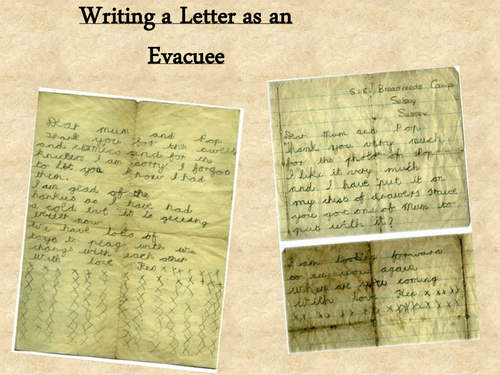 Writing a Letter as an
Evacuee
Dear Mum and Pop
Thank you for the
and for the
I am sorry I forgot
to let you know I had
them.
I am glad of the
hankies as I have had
a cold but it is getting
better now
We have lots of
toys to play with we
change with each other
With love x x x x x x
Camp
Selsey
Sussex
Dear Mum and Pop
Thank you very much
for the photo of Pop
I like it very much
and I have put it on
my chest of drawers have
you got one of Mum to
put with it?
I am looking forward
to see you again
When are you coming
With love x x x x